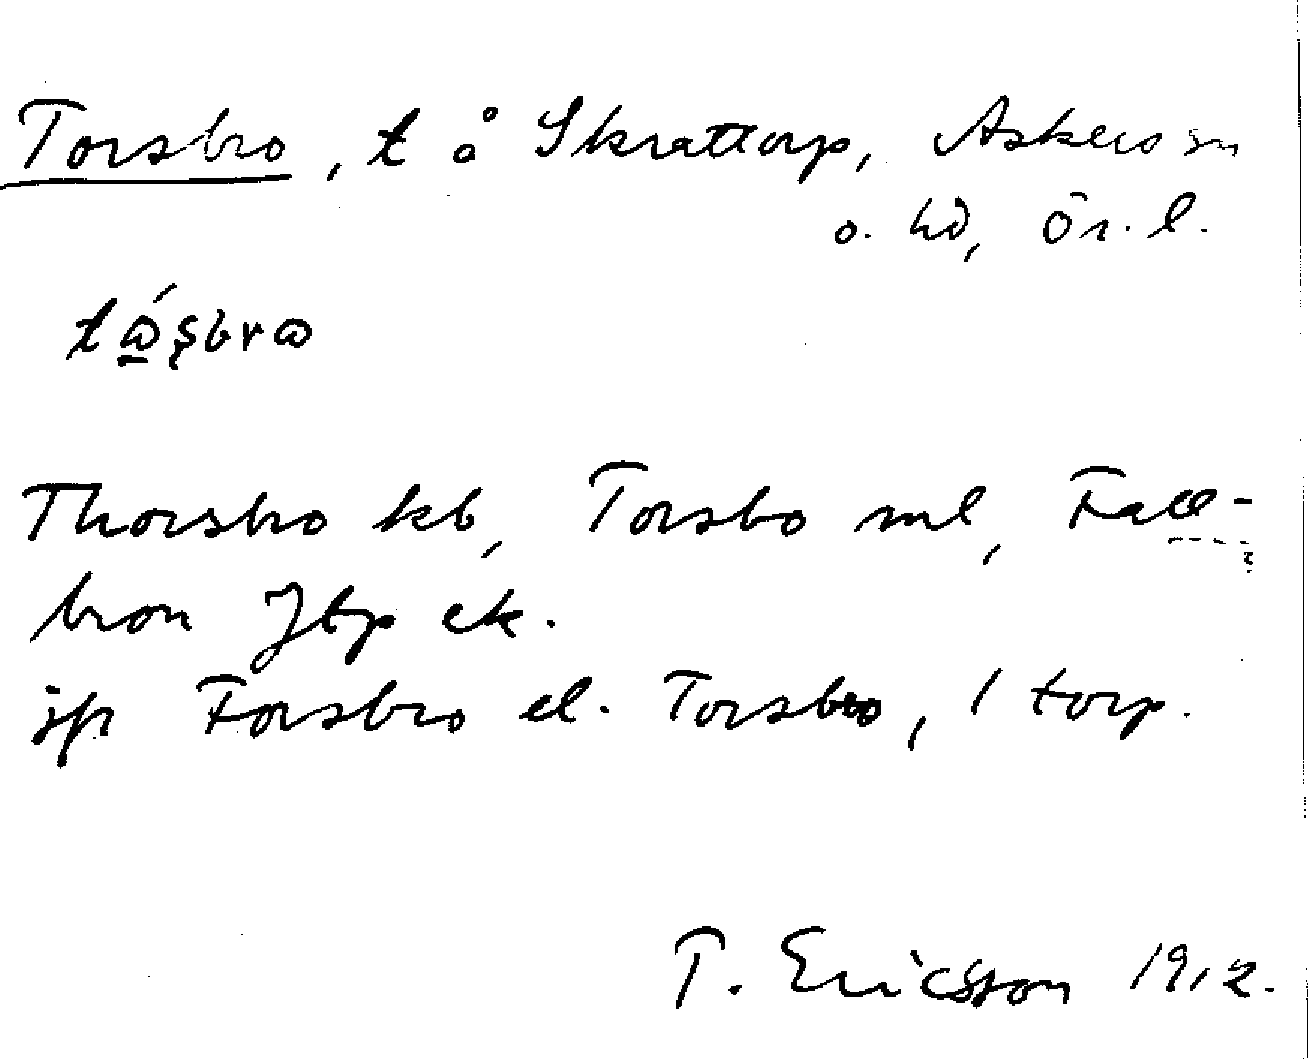 Torsbro, t å Skrattorp, Askers sn
o. hd, Ör. l.
Thorsbro kb, Torsbo ml, Fall-
bron Jtp ek.
jfr Forsbro el. Torsbro, 1 torp.
T. Ericsson 1912.